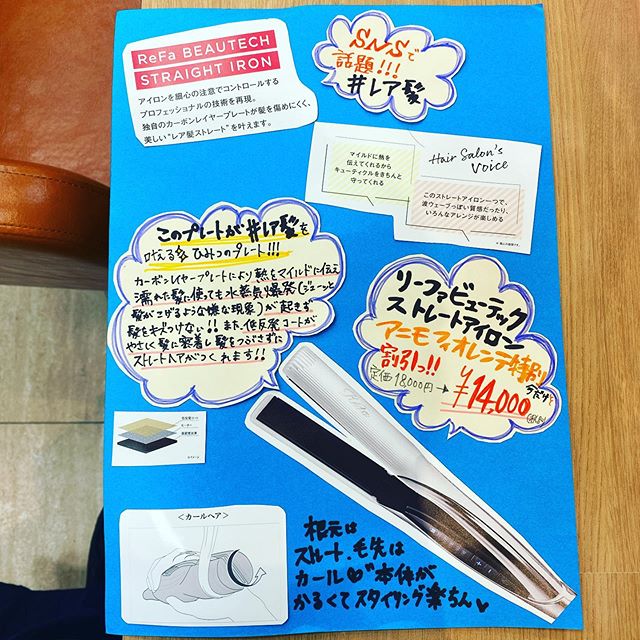 ReFa BEAUTECH
STRAIGHT IRON
アイロンを細心の注意でコントロールする
プロフェッショナルの技術を再現。
独自のカーボンレイヤープレートが髪を傷めにくく、
美しい"レア髪ストレート"を叶えます。
SNSで
話題!!!
#レア髪
マイルドに熱を
伝えてくれるから
キューティクルをきちんと
守ってくれる
Hair Salon's
Voice
このストレートアイロン一つで、
波ウェーブっぽい質感だったり、
いろんなアレンジが楽しめる
このプレートが#レア髪を
叶える ひみつのプレート!!!
カーボンレイヤープレートにより熱をマイルドに伝え
濡れた髪に使っても水蒸気爆発(ジューッと
髪がこげるような嫌な現象)が起きず
髪をキズつけない!! また、低反発コートが
やさしく髪に密着し髪をつぶさずに
ストレートヘアがつくれます!!
リーファビューテック
ストレートアイロン
アニモフィオレンテ特別
割引っ!! 今だけ!
定価18000円→¥14,000
(税込)
低反発コート
ヒーター
高密度炭素
ReFa
<カールヘア>
根元は
ストレート、毛先は
カール♡ 本体が
かるくてスタイリング楽ちん♥